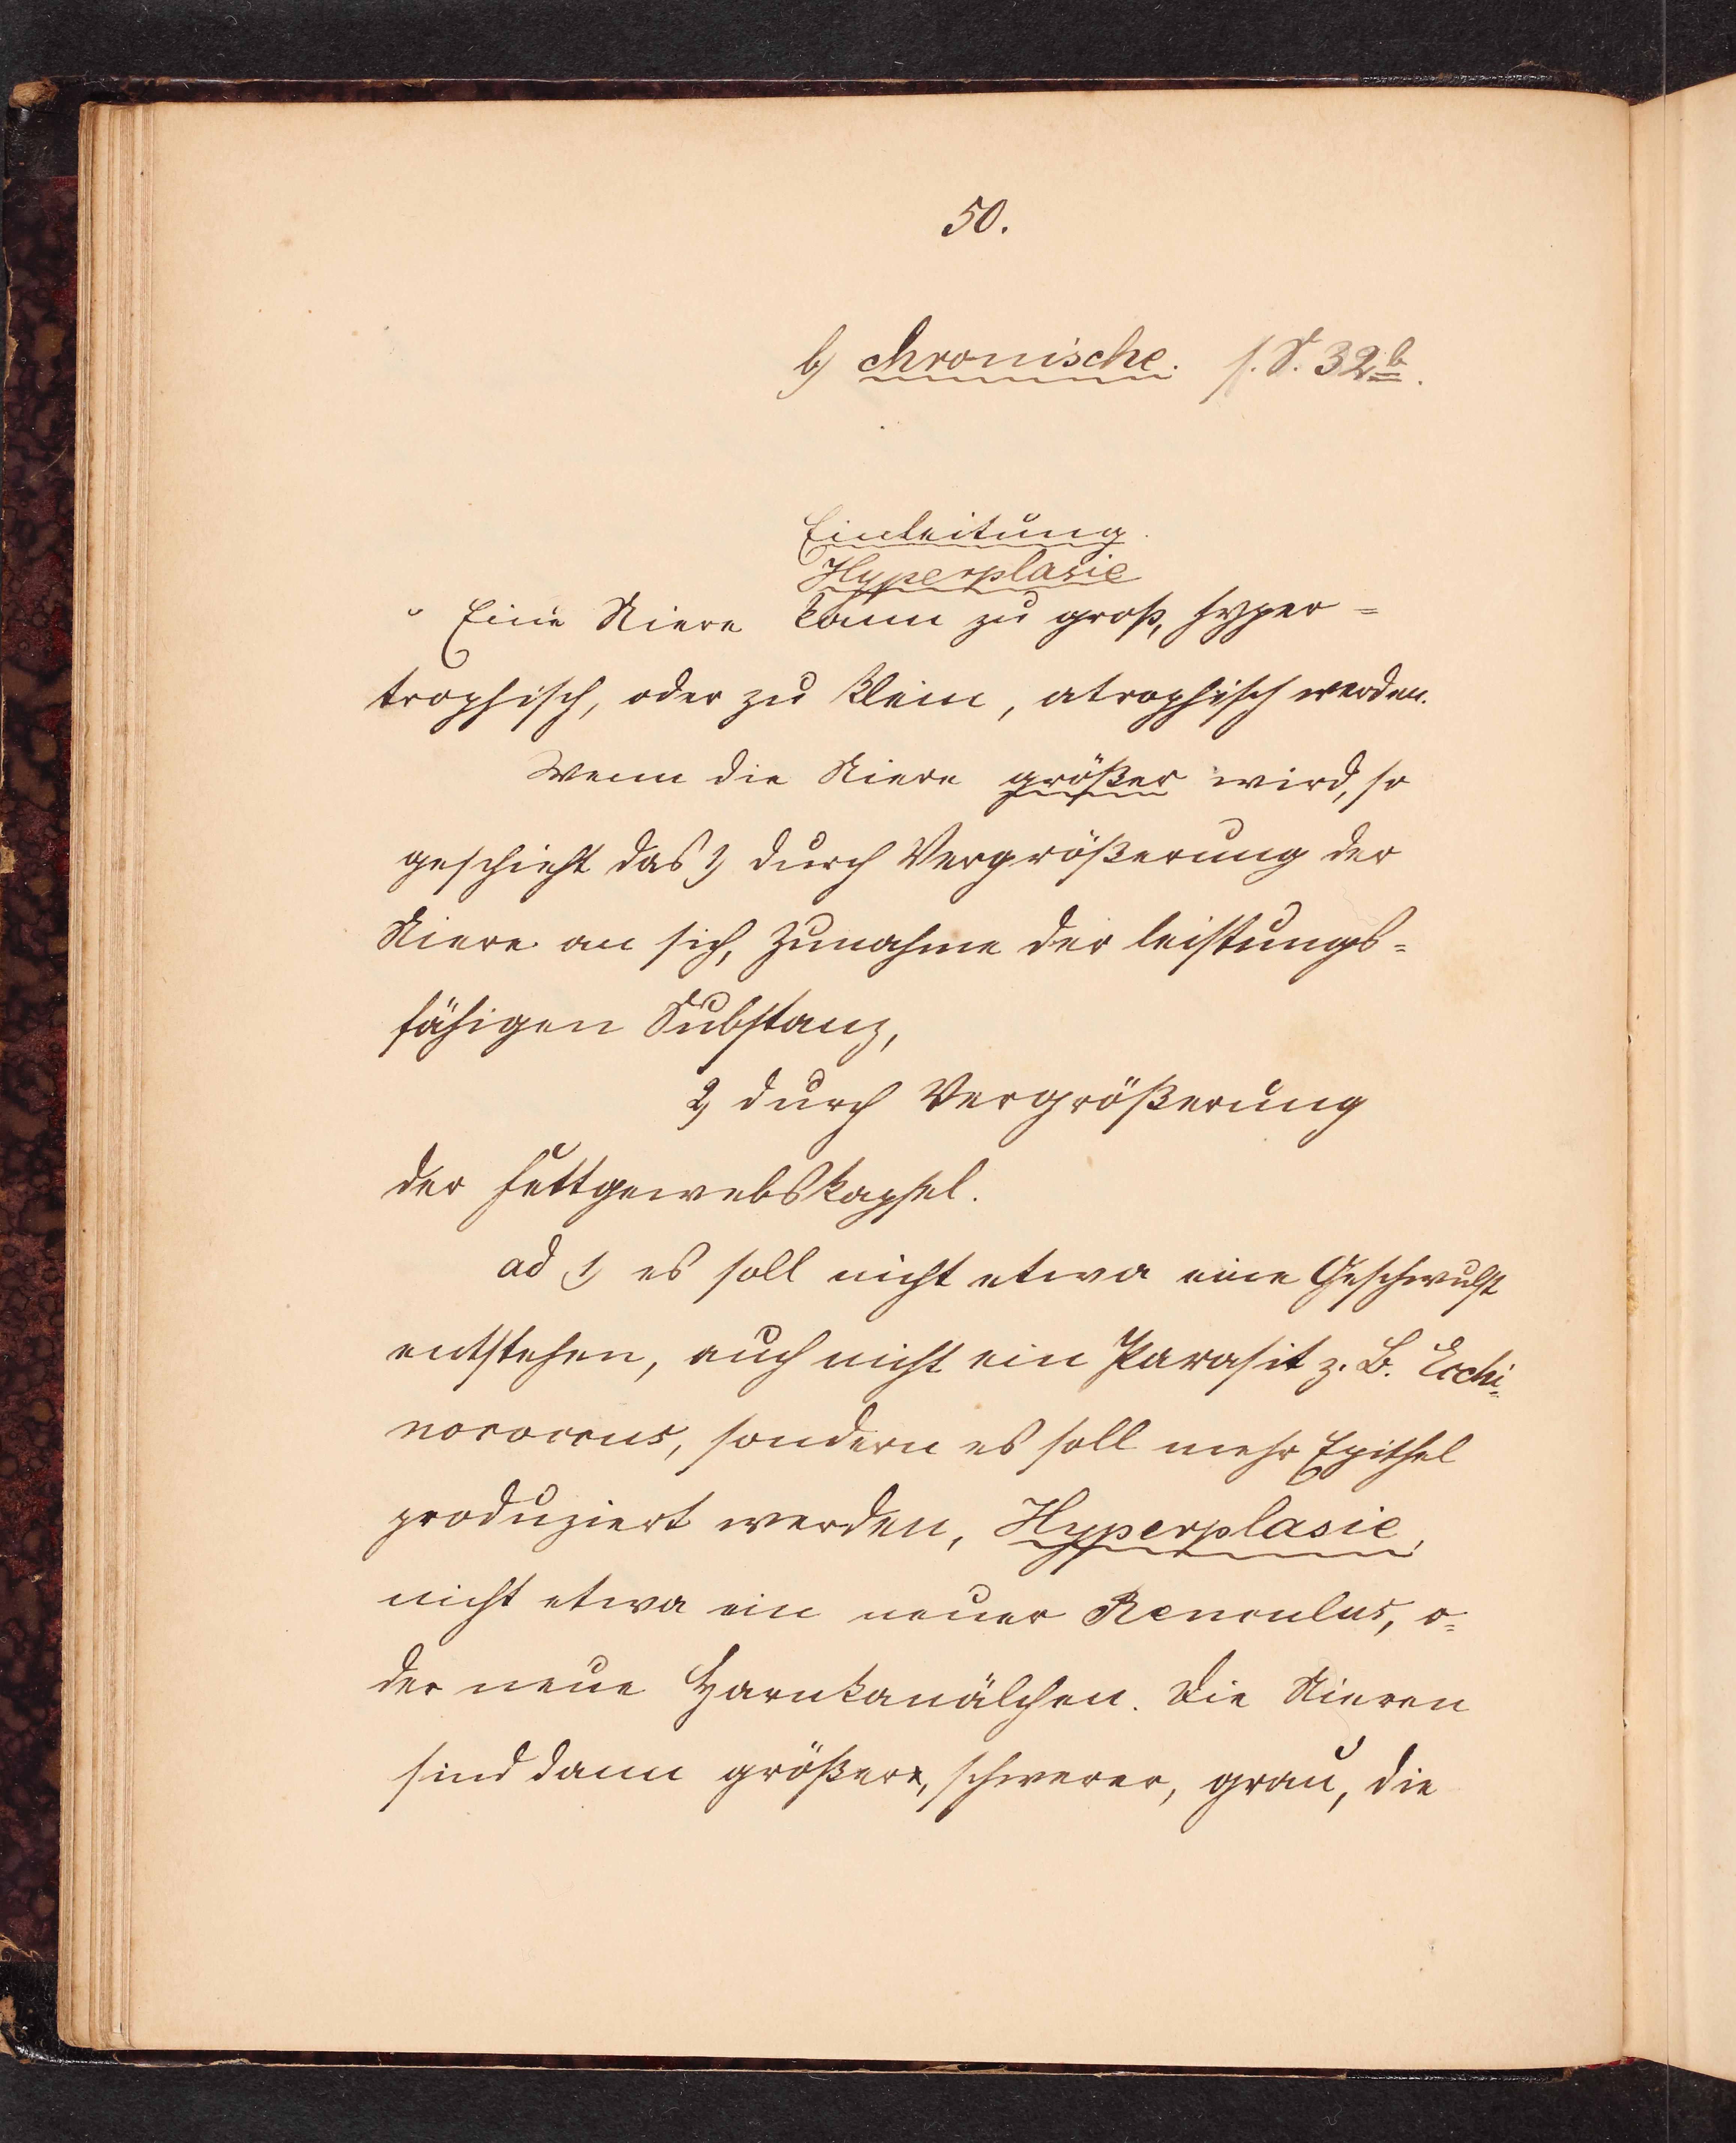 50.
b) chronische. s. S. 32b.
Einleitung.
Hyperplasie
Eine Niere kann zu groß, hyper=
trophisch, oder zu klein, atrophisch werden.
Wenn die Niere größer wird, so
geschieht das 1) durch Vergrößerung der
Niere an sich, Zunahme der leistungs=
fähigen Substanz,
2) durch Vergrößerung
der Fettgewebskapsel.
ad 1) es soll nicht etwa eine Geschwulst
entstehen, auch nicht ein Parasit z. B. Ecchi=
nococcus, sondern es soll mehr Epithel
produziert werden, Hyperplasie,
nicht etwa ein neuer Renculus, o=
der neue Harnkanälchen. Die Nieren
sind dann größer, schwerer, grau, die